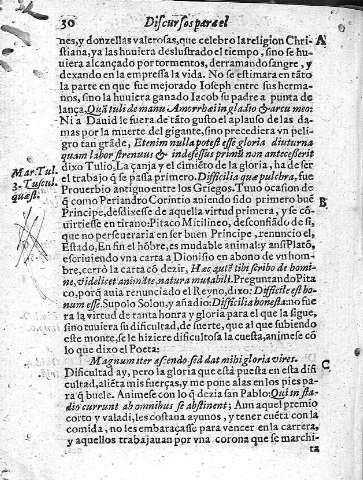 30 Discursos para el
nes, y donzellas valerosas, que celebrò la religion Chris- A
tiana, ya las huuiera deslustrado el tiempo, sino se hu
uiera alcançado por tormentos, derramando sangre, y
dexando en la empressa la vida. No se estimara en tãto
la parte en que fue mejorado Ioseph entre sus herma-
nos, sino la huuiera ganado Iacob su padre a punta de
lança. Quã tuli de manu Amorrhæi in gladio & arcu meo:
Ni a Dauid le fuera de tãto gusto el aplauso de las da-
mas por la muerte del gigante, sino precediera vn peli-
gro tan grãde, Etenim nulla potest esse gloria diuturna
quam labor strenuus & indefessus primũ non antecesserit
Mar. Tul. dixo Tulio. La çanja y el cimiẽto de la gloria, ha de ser
3. Tuscul. el trabajo q̃ se passa primero. Difficilia quæ pulchra, fue
quæst. Prouerbio antiguo entre los Griegos. Tuuo ocasion de
q̃ como Periandro Corintio aniendo sido primero buẽ B
Principe, desdixesse de aquella virtud primera, y se cõ
uirtiesse en tirano: Pitaco Mitileneo, desconfiãdo de sì,
que no perseueraria en ser buen Principe, renunciò el
Estado, En fin el hõbre, es mudable animal: y ansi Platõ,
escriuiendo vna carta a Dionisio en abono de vn hom-
bre, cerrò la carta cõ dezir, Hæc autẽ tibi scribo de homi-
ne, videlicet animãte, natura mutabili. Preguntando Pita
co, porq̃ auia renunciado el Reyno, dixo: Difficile est bo-
num esse. Supolo Solon, y añadio: Difficilia honesta: no fue
ra la virtud de tanta honra y gloria para el que la sigue,
sino tuuiera su dificultad, de suerte, que al que subiendo
este monte, se le hiziere dificultosa la cuesta, animese cõ
lo que dixo el Poeta:
Magnum iter ascendo, sed dat mihi gloria vires. C
Dificultad ay, pero la gloria que està puesta en esta difi
cultad, aliẽta mis fuerças, y me pone alas en los pies pa-
ra q̃ buele. Animese con lo q̃ dezia san Pablo: Qui in sta-
dio currunt ab omnibus se abstinent; Aun aquel premio
corto y valadi, les costaua ayunos, y tener cuẽta con la
comida, no les embaraçasse para vencer en la carrera,
y aquellos trabajauan por vna corona que se marchi-
ta